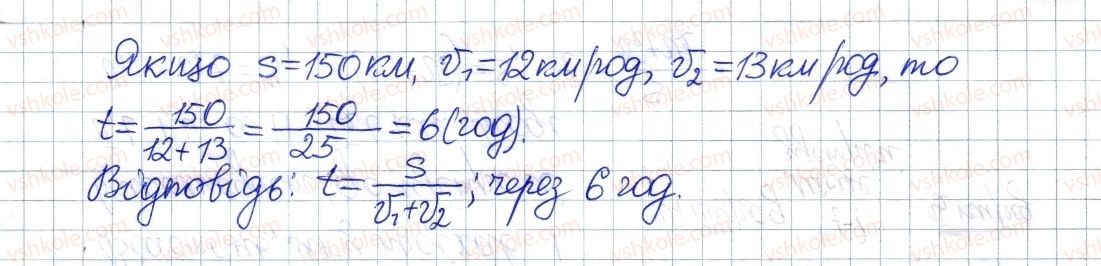 Якщо s=150км, v₁=12км/год, v₂=13км/год, то
t=150/(12+13)=150/25=6(год).
Відповідь: t=s/(v₁+v₂); через 6 год.